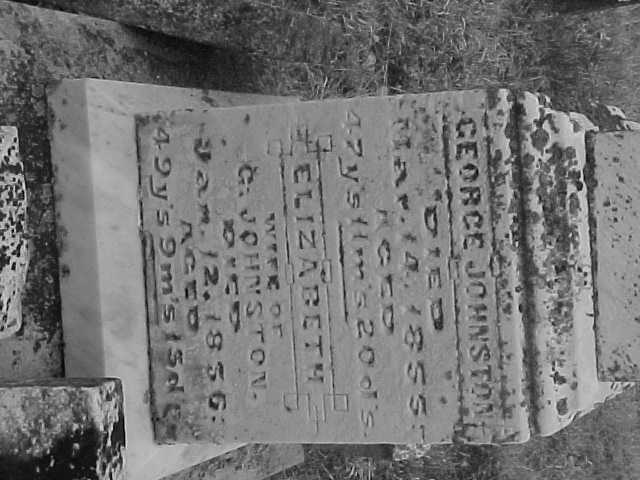 GEORGE JOHNSTON
DIED
Mar. 14. 1855:
AGED
47 y's 11 m's 20 d's.
ELIZABETH
WIFE OF
G. JOHNSTON.
DIED
Jan. 12. 1856:
AGED
49 y's 9 m's 15 d's